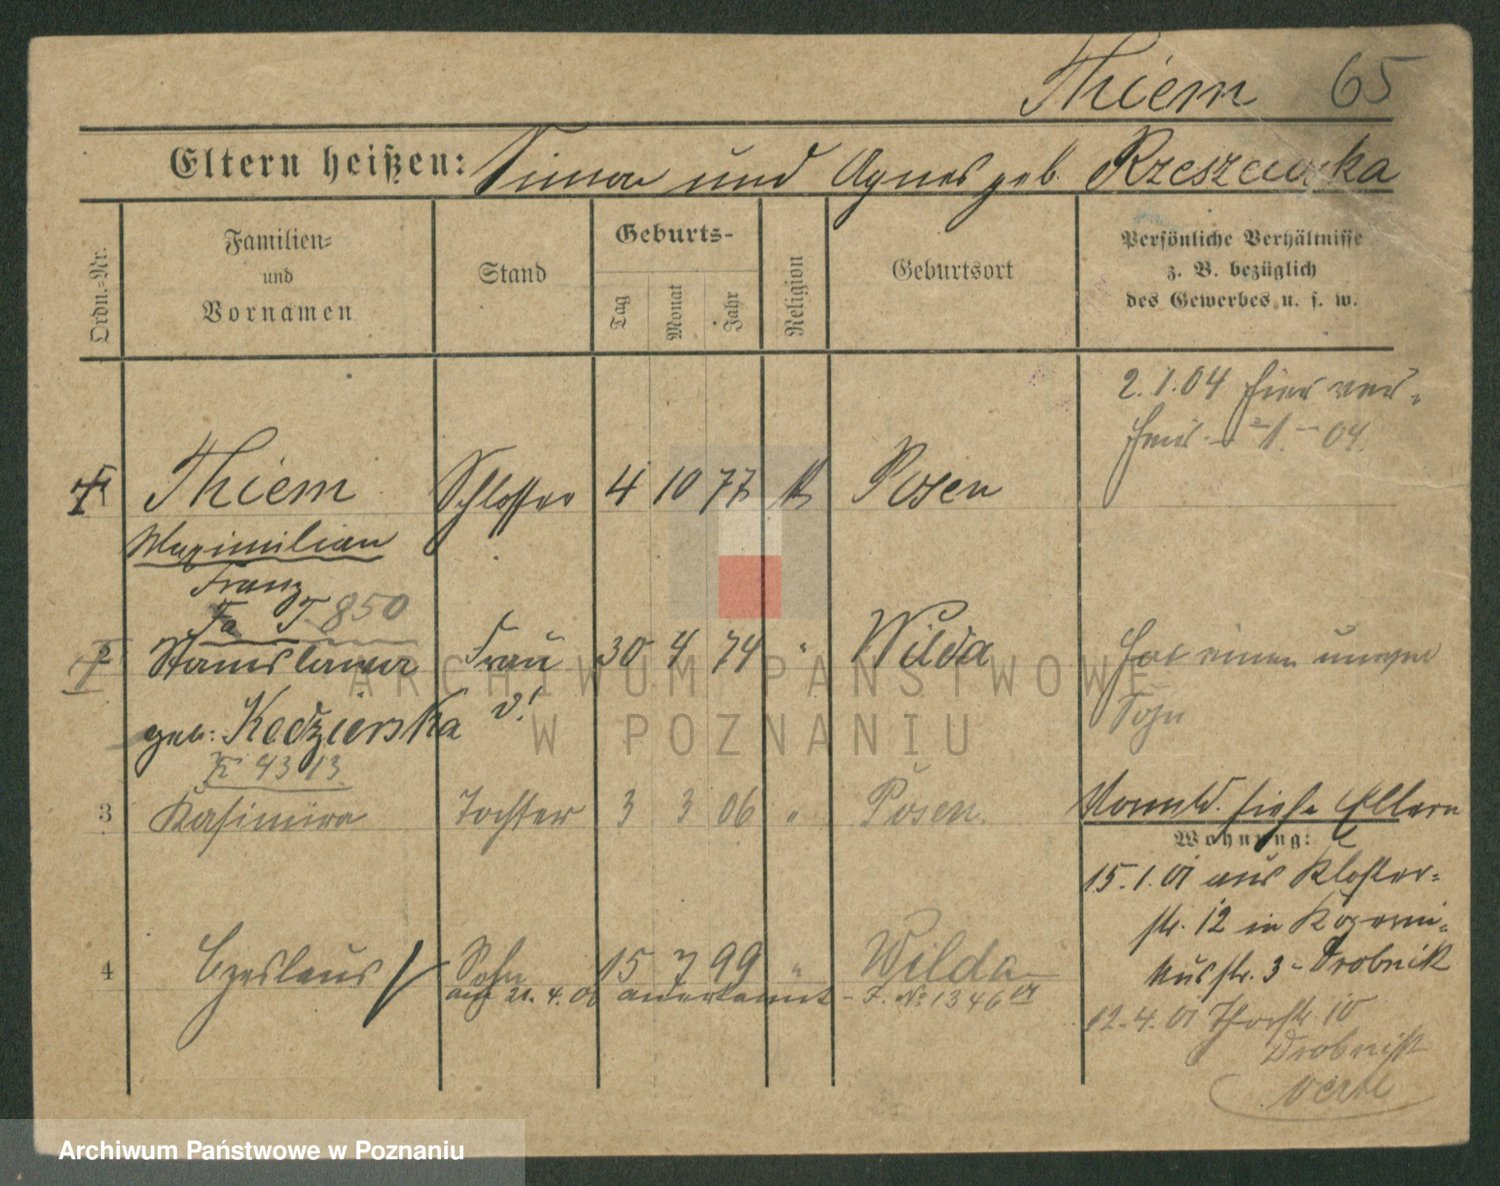 Thiem 65
Eltern heißen: Simon und Agnes geb. Rzeszewska
Ordn.-Nr.
Familien-
und
Vornamen
Stand
Geburts-
Tag
Monat
Jahr
Religion
Geburtsort
Persönliche Verhältnisse
z. B. bezüglich
des Gewerbes u. s. w.
2.1.04 hier
04.
1 Thiem Schlosser 4 10 77 k Posen
Maximilian
Franz
T. 850
2 Stanislawa Frau 30 4 74 " Wilda Hat einen
Sohn
geb. Kedzierska v!
K 4313
3 Kasimira Tochter 3 3 06 " Posen. siehe Eltern
Wohnung:
15.1.01 aus Kloster-
str. 12 in Koperni-
kusstr. 3 - Drobnik
4 Czeslaus Sohn 15 7 99 " Wilda
auf 21.4.06 anerkannt - J. No 1346
12.4.01 10
Drobnik
ARCHIWUM PAŃSTWOWE
W POZNANIU
Archiwum Państwowe w Poznaniu